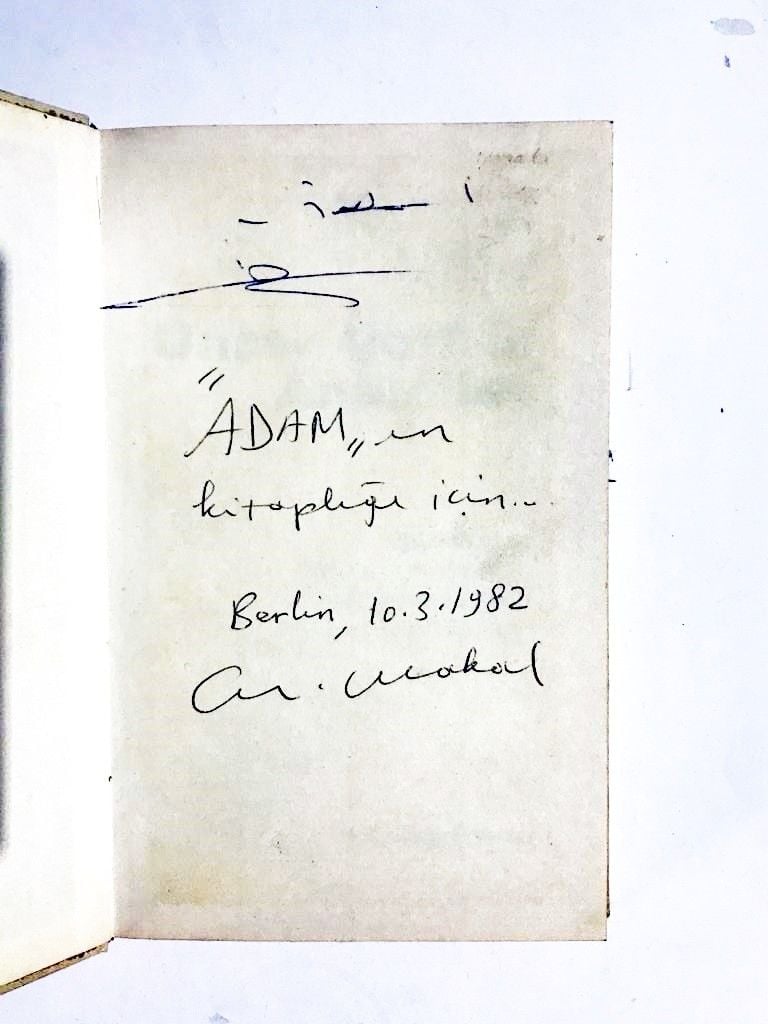 "ADAM„ın
kitaplığı için...
Berlin, 10.3.1982
M. Makal